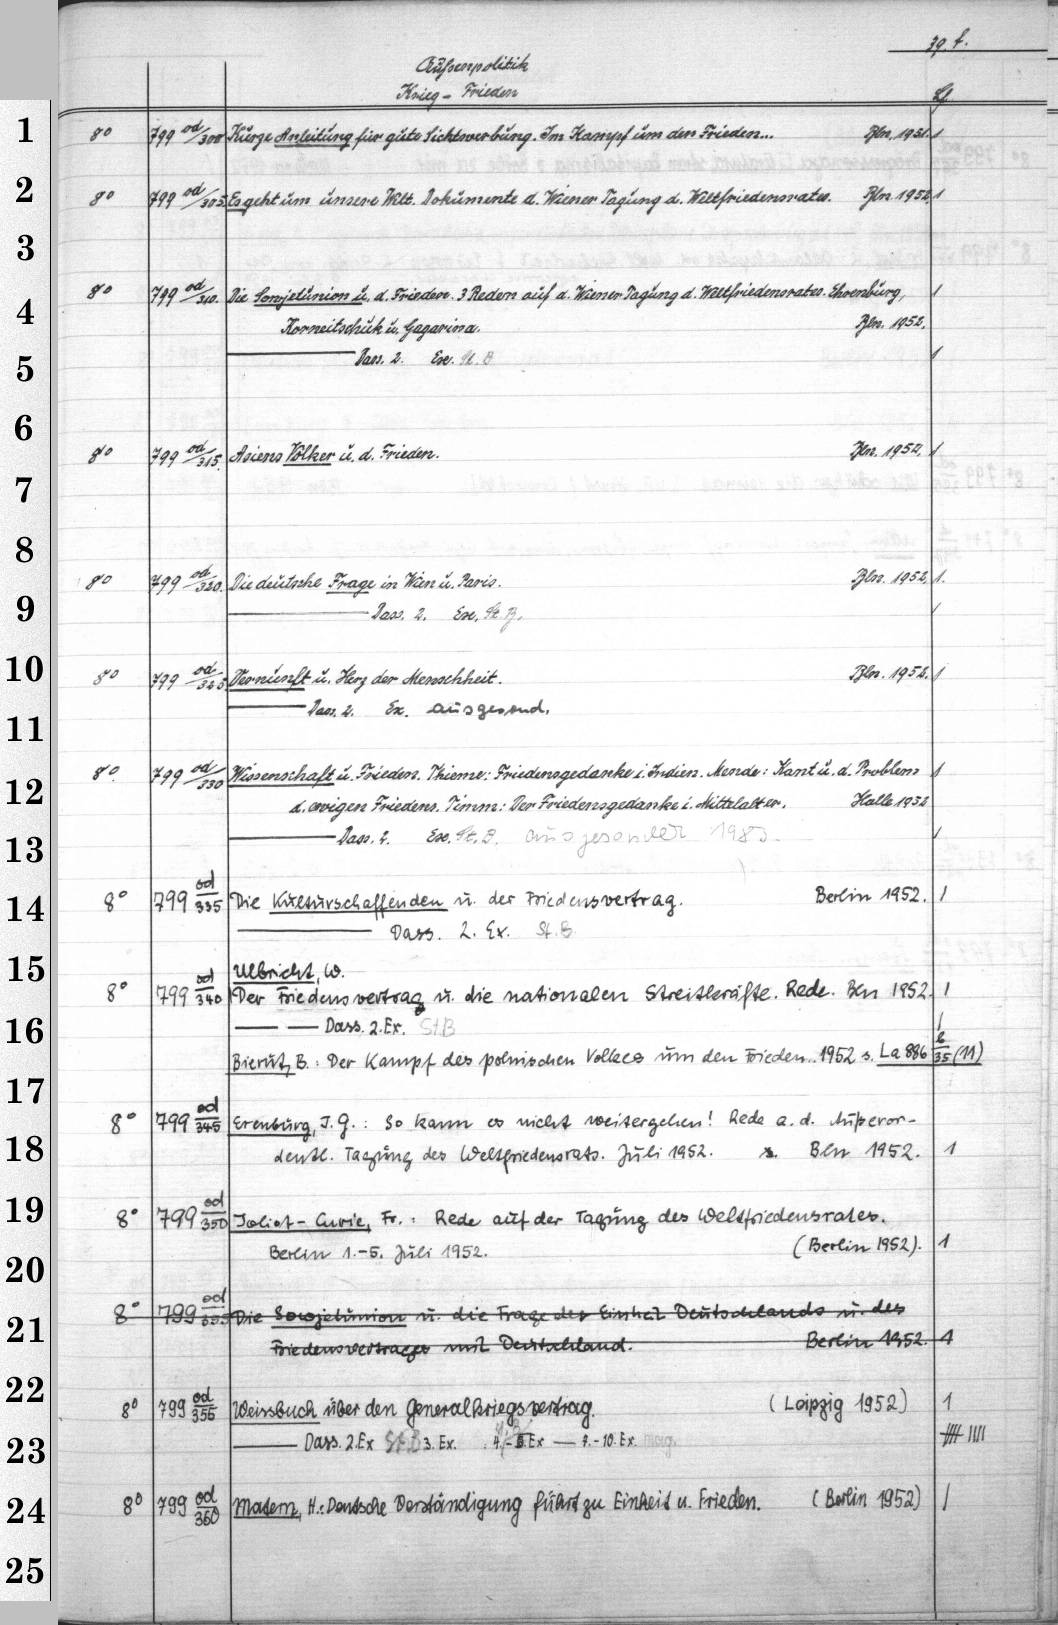 39. f.
Außenpolitik
Krieg - Frieden
1 8° 799 od/300 Kurze Anleitung für gute Sichtwerbung. Im Kampf um den Frieden... Bln. 1951. 1
2 8° 799 od/305. Es geht um unsere Welt. Dokumente d. Wiener Tagung d. Weltfriedensrates. Bln. 1952. 1
3
8° 799 od/310. Die Sowjetunion u. d. Frieden. 3 Reden auf d. Wiener Tagung d. Weltfriedensrates. Ehrenburg, 1
4 Korneitschuk u. Gagarina. Bln. 1952.
5 Dass. 2. Ex. St. B 1
6
8° 799 od/315. Asiens Völker u. d. Frieden. Bln. 1952. 1
7
8
8° 799 od/320. Die deutsche Frage in Wien u. Paris. Bln. 1952. 1.
9 Dass. 2. Ex. St. B. 1
10 8° 799 od/325 Vernunft u. Herz der Menschheit. Bln. 1952. 1
11 Dass. 2. Ex. ausgesond.
12 8° 799 od/330 Wissenschaft u. Frieden. Thieme: Friedensgedanke i. Indien. Mende: Kant u. d. Problem 1
d. ewigen Friedens. Timm: Der Friedensgedanke i. Mittelalter. Halle 1952
13 Dass. 2. Ex. St. B. ausgesondert 1983. 1
14 8° 799 od/335 Die Kulturschaffenden u. der Friedensvertrag. Berlin 1952. 1
Dass. 2. Ex. St.B
15 Ulbricht, W.
8° 799 od/340 Der Friedensvertrag u. die nationalen Streitkräfte. Rede. Bln 1952. 1
16 Dass. 2. Ex. StB 1
Bierut, B.: Der Kampf des polnischen Volkes um den Frieden.. 1952 s. La 886 /35 (11)
17
8° 799 od/345 Erenburg, I. G.: So kann es nicht weitergehen! Rede a. d. Außeror-
18 dentl. Tagung des Weltfriedensrats. Juli 1952. Bln 1952. 1
19 8° 799 od/350 Joliot-Curie, Fr.: Rede auf der Tagung des Weltfriedensrates.
Berlin 1.-5. Juli 1952. (Berlin 1952). 1
20
8° 799 od/355 Die Sowjetunion u. die Frage der Einheit Deutschlands u. des
21 Friedensvertrages mit Deutschland. Berlin 1952. 1
22 8° 799 od/355 Weissbuch über den Generalkriegsvertrag. (Leipzig 1952) 1
23 Dass. 2. Ex St.B 3. Ex. 4.- Ex — 7.-10. Ex. mag. |||| ||||
24 8° 799 od/360 Matern, H.: Deutsche Verständigung führt zu Einheit u. Frieden. (Berlin 1952) 1
25